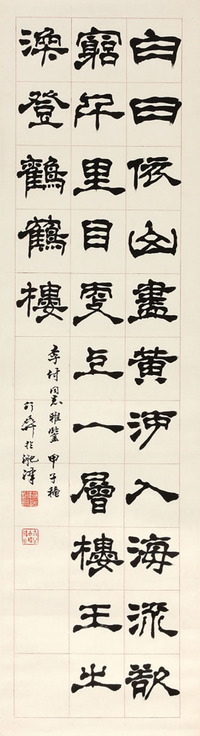 白日依山盡黃河入海流欲
窮千里目更上一層樓王之
渙登鸛鶴樓
李村同志雅鑒 甲子